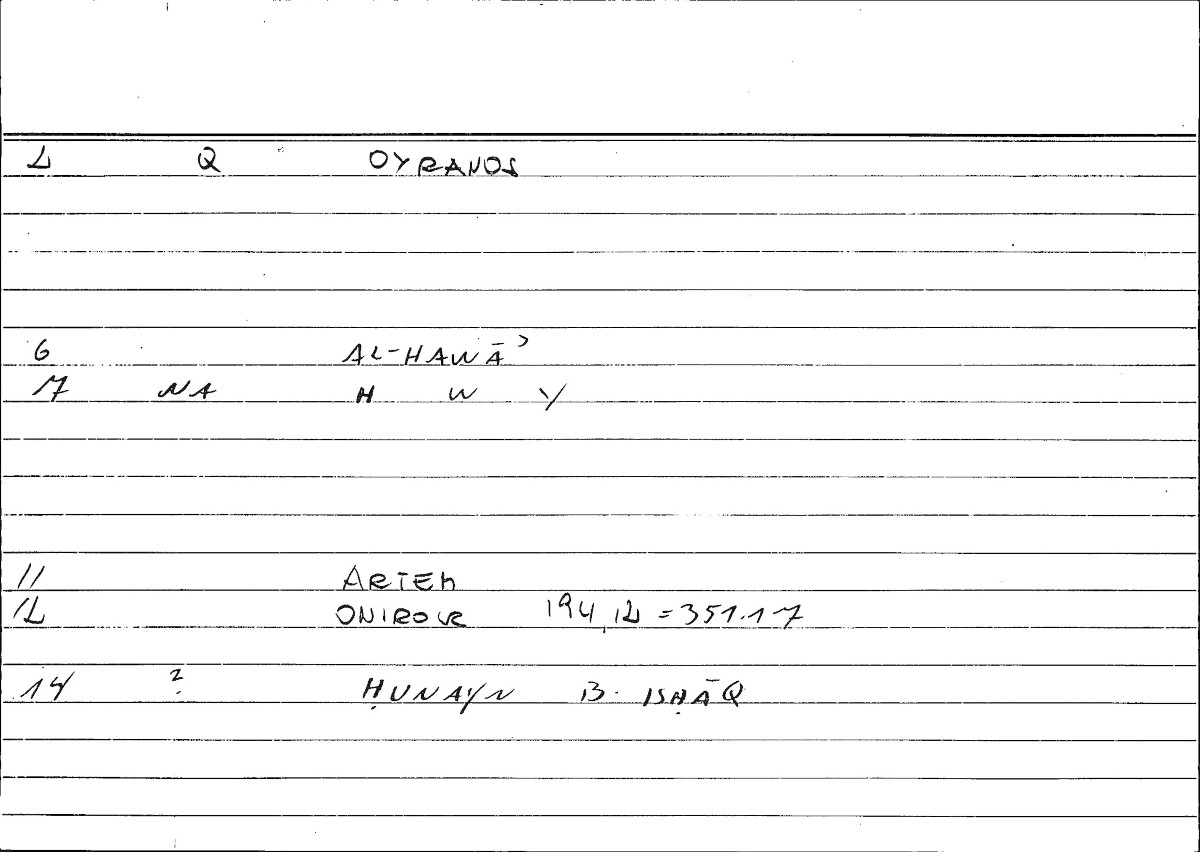 2 Q OYRANOS
6 AL-HAWĀʾ
7 NA H W Y
11 ARTEM
12 ONIROCR 194,12 = 351.17
14 ? ḤUNAYN B. ISḤĀQ